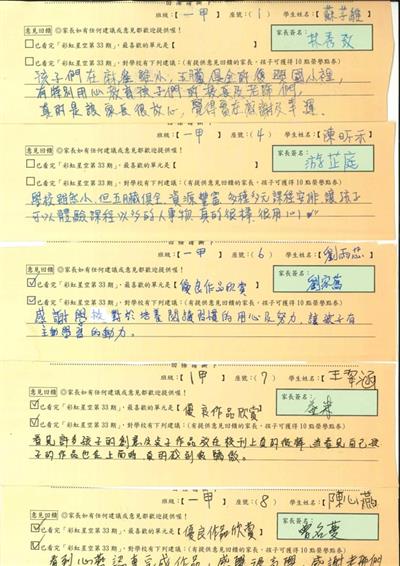 班級：【一甲】 座號：( 1 ) 學生姓名：【蘇
意見回饋 ◎家長如有任何建議或意見都歡迎提供喔！ 家長簽章：
□已看完「彩虹星空第33期」，最喜歡的單元是【
□已看完「彩虹星空第33期」，對學校有下列建議：(有提供意見回饋的家長，孩子可獲得10點榮譽點券)
孩子們在麻雀雖小，五臟俱全的僑
有特別用心
真的是讓家長很放心，覺得
班級：【一甲】 座號：( 4 ) 學生姓名：【陳
意見回饋 ◎家長如有任何建議或意見都歡迎提供喔！ 家長簽章：
□已看完「彩虹星空第33期」，最喜歡的單元是【 游芷庭
□已看完「彩虹星空第33期」，對學校有下列建議：(有提供意見回饋的家長，孩子可獲得10點榮譽點券)
學校雖然小，但五臟俱全，資源豐富，多種多元課程安排，讓孩子
可以體驗課程以外的人事物，真的很棒，很用心！
班級：【一甲】 座號：( 6 ) 學生姓名：【劉
意見回饋 ◎家長如有任何建議或意見都歡迎提供喔！ 家長簽章：
已看完「彩虹星空第33期」，最喜歡的單元是【優良作品欣賞
已看完「彩虹星空第33期」，對學校有下列建議：(有提供意見回饋的家長，孩子可獲得10點榮譽點券)
感謝學校對於培養閱讀習慣的用心及努力，讓孩子有
主動學習的動力。
班級：【1甲】 座號：( 7 ) 學生姓名：【王
意見回饋 ◎家長如有任何建議或意見都歡迎提供喔！ 家長簽章：
已看完「彩虹星空第33期」，最喜歡的單元是【優良作品欣賞
已看完「彩虹星空第33期」，對學校有下列建議：(有提供意見回饋的家長，孩子可獲得10點榮譽點券)
看見許多孩子的創意及文字作品放在校刊上真的很棒，當看見自己孩
子的作品也在上面時，真的感到很驕傲。
班級：【一甲】 座號：( 8 ) 學生姓名：【陳心
意見回饋 ◎家長如有任何建議或意見都歡迎提供喔！ 家長簽章：
已看完「彩虹星空第33期」，最喜歡的單元是【優良作品欣賞
已看完「彩虹星空第33期」，對學校有下列建議：(有提供意見回饋的家長，孩子可獲得10點榮譽點券)